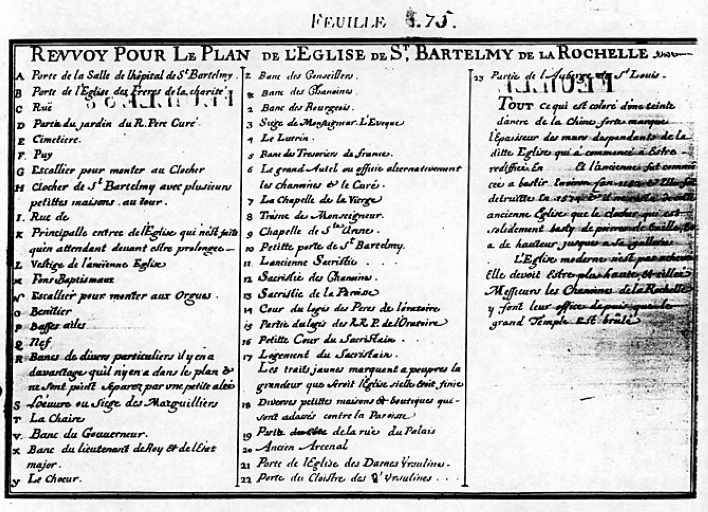 FEUILLE 75.
REVVOY POUR LE PLAN DE L'EGLISE DE ST. BARTELMY DE LA ROCHELLE
A Porte de la Salle de lhôpital de St Bartelmy.
B Porte de l'Eglise des Freres de la charité
C Ruë
D Partie du jardin du R. Pere Curé.
E Cimetiere.
F Puy
G Escallier pour monter au Clocher
H Clocher de St Bartelmy avec plusieurs
petittes maisons au tour.
I. Rue de
K Principalle entree de l'Eglise qui n'est faite
qu'en attendant devant estre prolongee
L Vestige de l'anciënne Eglise
M Fons Baptismaux
N Escallier pour monter aux Orgues.
O Benitier
P Basses ailes
Q Nef
R Bancs de divers particuliers il y en a
davantage qu'il n'y en a dans le plan &
ne sont point separez par une petite alée
S L'oeuvre ou Siege des Marguilliers
T La Chaire
V. Banc du Gouverneur.
X Banc du lieutenant de Roy et de l'Etat
major.
y Le Choeur.
Z Banc des Conseillers.
& Banc des Chanoines
2 Banc des Bourgeois.
3 Siege de Monseigneur L'Eveque
4 Le Lutrin.
5 Banc des Tresoriers de france.
6 Le grand Autel ou officie alternativement
les chanoines & le Curé.
7 La Chapelle de la Vierge
8 Trosne de Monseigneur.
9 Chapelle de Ste Anne.
10 Petitte porte de St Bartelmy.
11 Lancienne Sacristie
12 Sacristie des Chanoines.
13 Sacristie de la Paroisse
14 Cour du logis des Peres de l'oratoire
15 Partie du logis des R.R. P. de l'Oratoire
16 Petitte Cour du Sacristain
17 Logement du Sacristain.
Les traits jaunes marquent a peu pres la
grandeur que seroit l'Eglise si elle êtoit finie
18 Diverses petites maisons & boutiques qui
sont adossés contre la Paroisse
19 Partie de la ruë du Palais
20 Ancien Arcenal
21 Porte de l'Eglise des Dames Ursulines.
22 Porte du Cloistre des Ursulines
23 Partie de l'Auberge de St Louis.
TOUT ce qui est coloré d'une teinte
d'ancre de la Chine forte marque
l'Epaisseur des murs dependants de la
ditte Eglise qui a commencé a Estre
redifiée En Et l'ancienne fut commen
cée a bastir Environ l'an Elle fut
detruitte en et il ne reste de cette
ancienne Eglise que le clocher qui est
solidement basty de pierres de taille, Il
a de hauteur jusques a sa gallerie
L'Eglise moderne n'est pas achevée
Elle devoit Estre plus haute, et
Messieurs les Chanoines de la Rochelle
y font leur office depuis que le
grand Temple Est brûlé